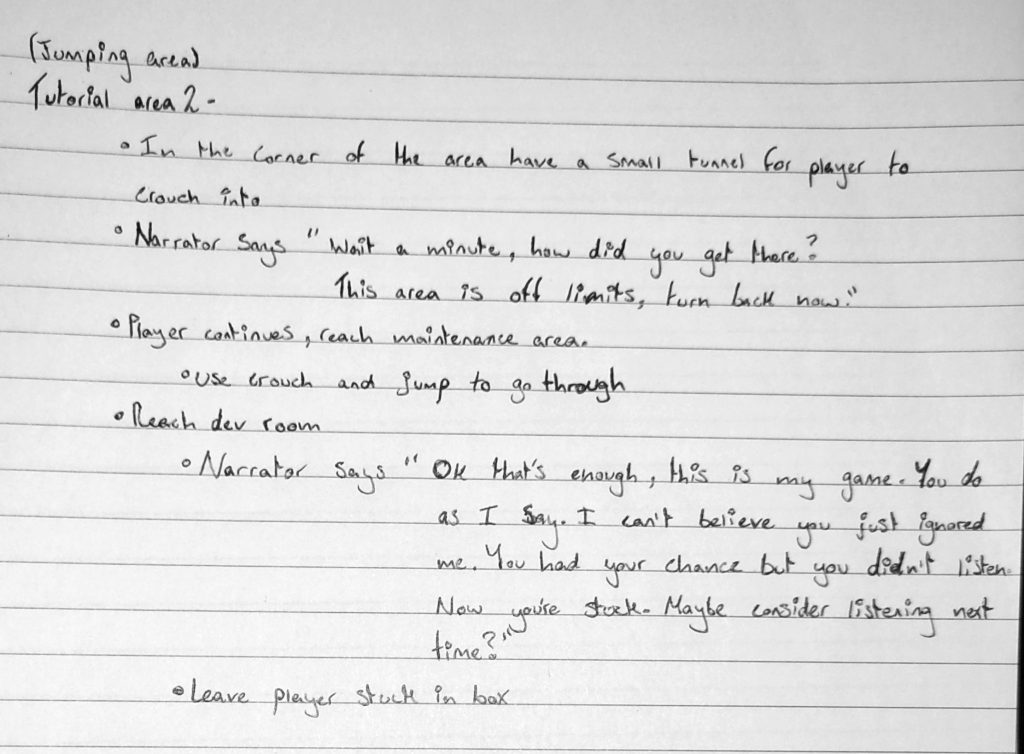 (Jumping area)
Tutorial area 2 -
• In the corner of the area have a small tunnel for player to
crouch into
• Narrator says " Wait a minute, how did you get there?
This area is off limits, turn back now."
• Player continues, reach maintenance area.
• Use crouch and jump to go through
• Reach dev room
• Narrator says " Ok that's enough, this is my game. You do
as I say. I can't believe you just ignored
me. You had your chance but you didn't listen.
Now you're stuck. Maybe consider listening next
time?"
• Leave player stuck in box